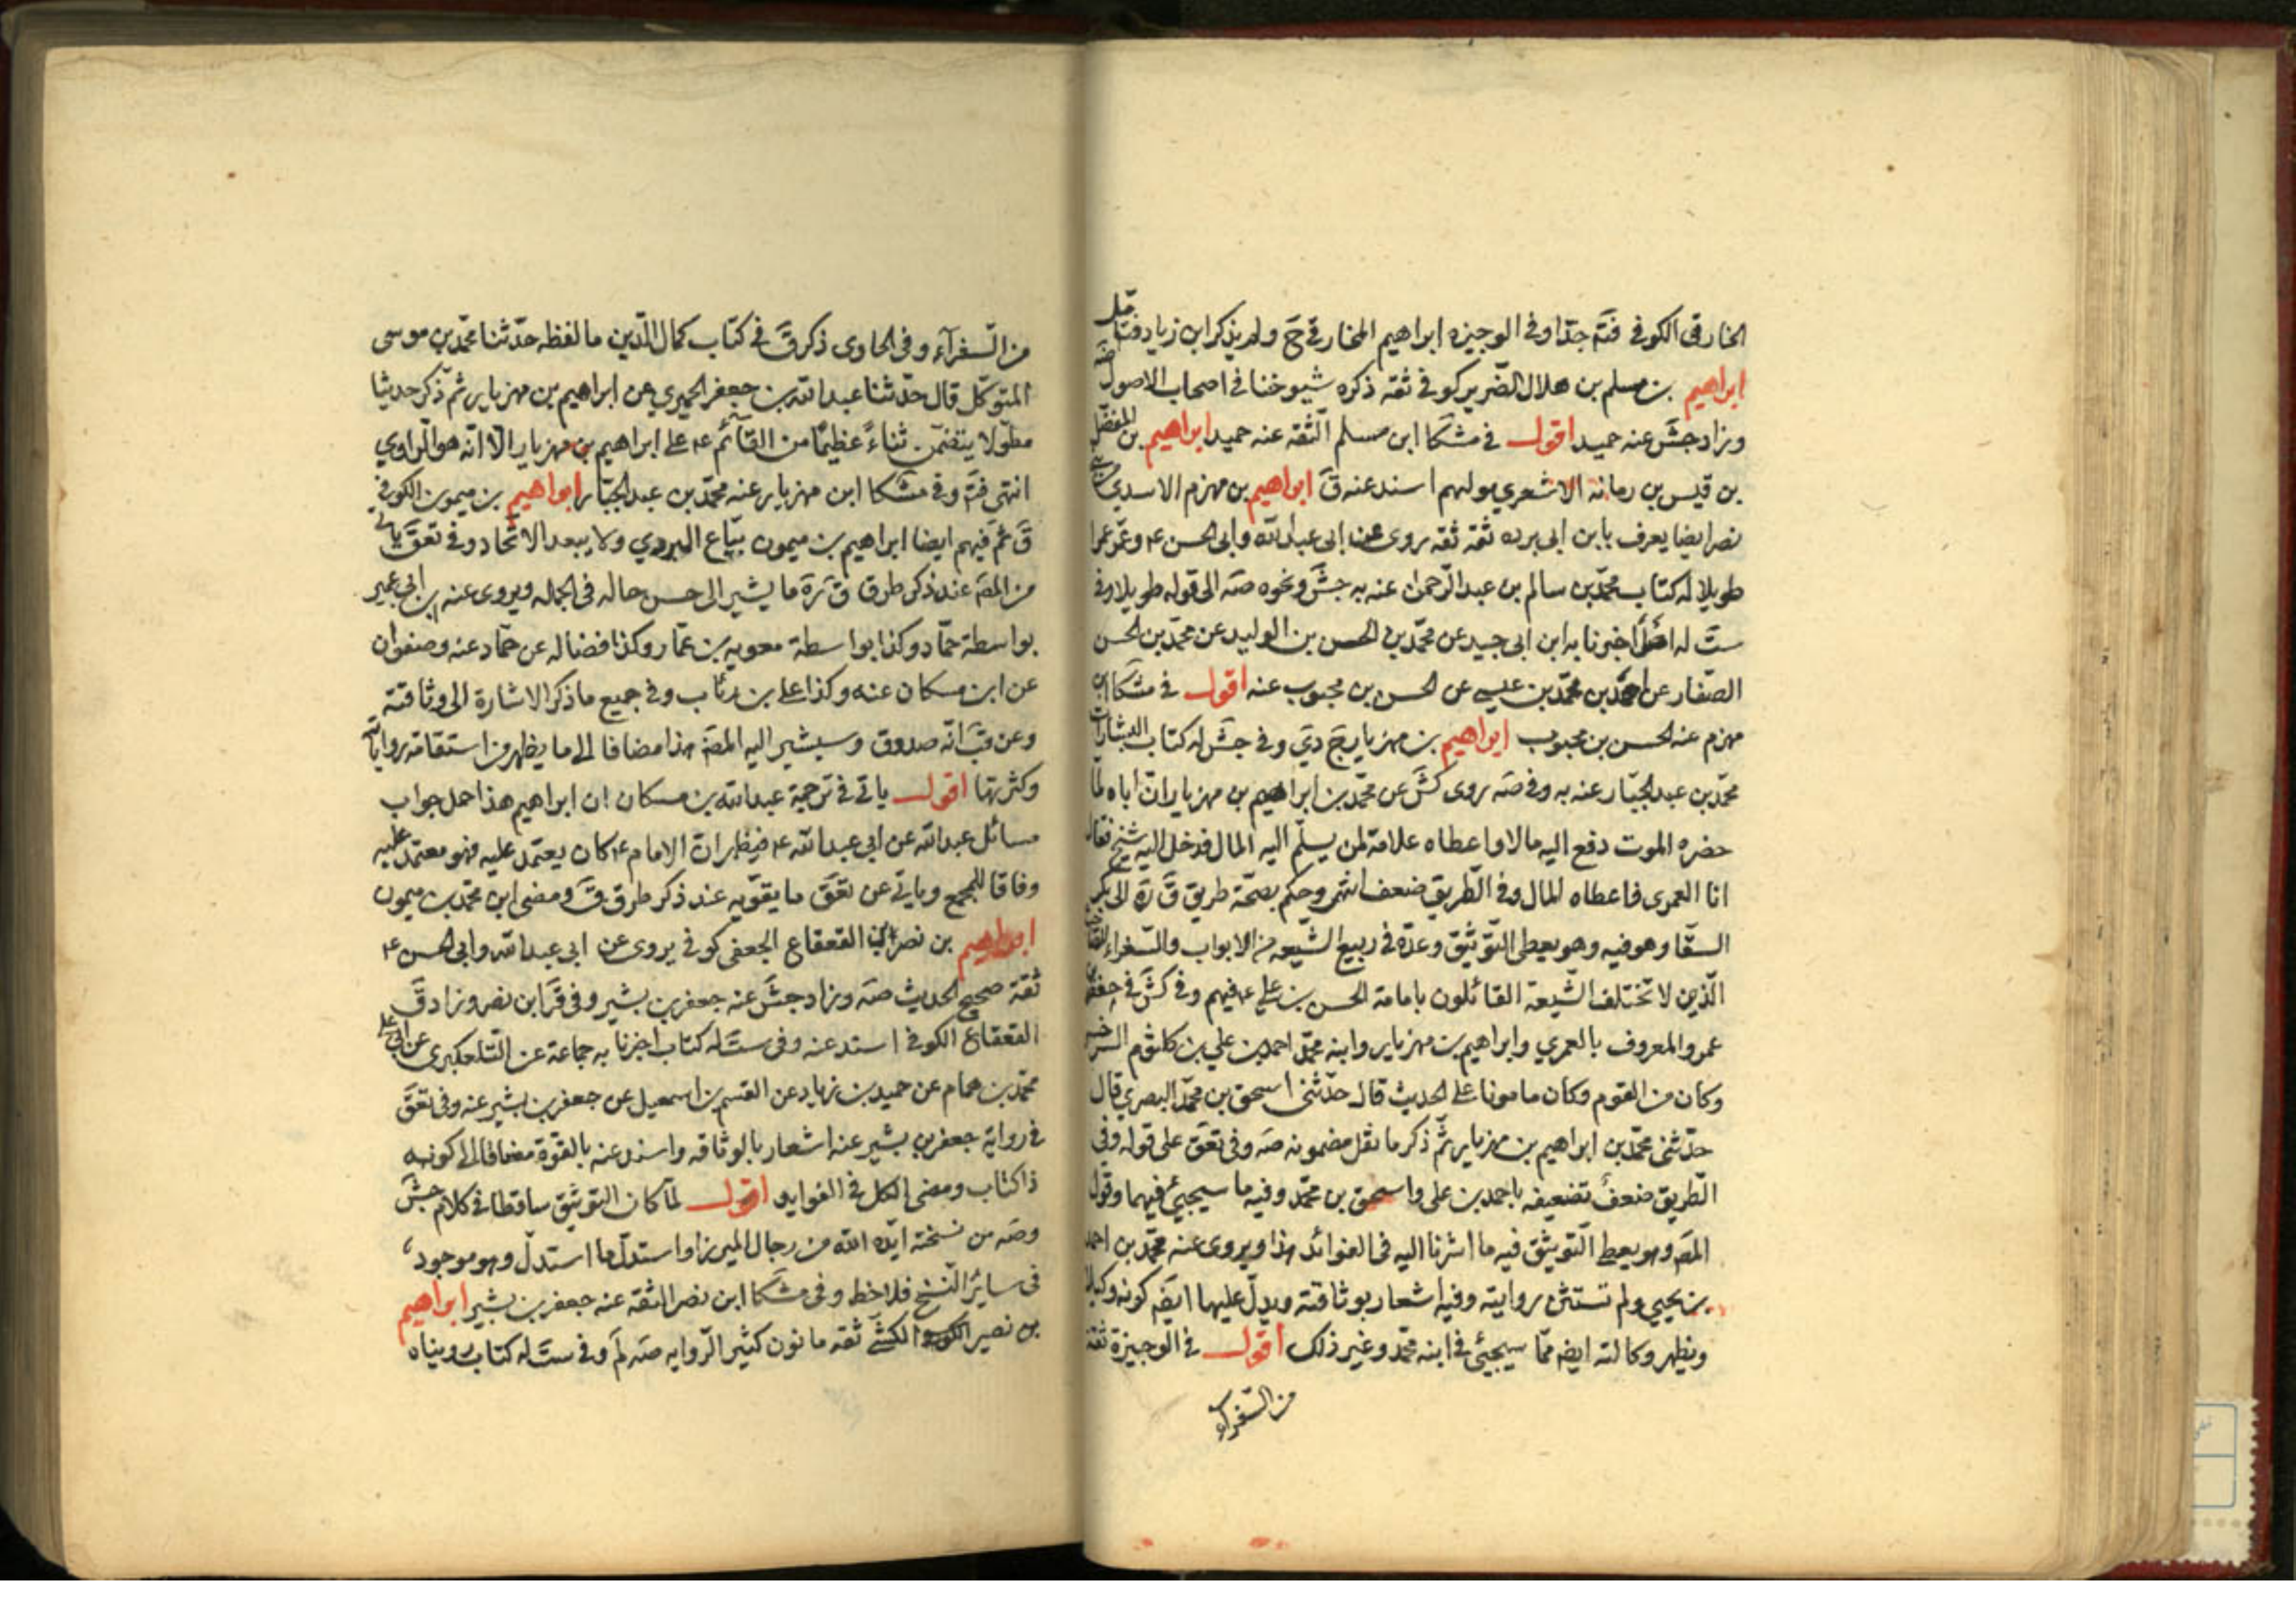 الخارقى الكوفى فتم جدا وفى الوجيزه ابراهيم المخارقى ح ولم يذكر ابن زياد فتامل
ابراهيم بن مسلم بن هلال الضرير كوفى ثقة ذكره شيوخنا فى اصحاب الاصول صه
وزاد جش عنه حميد اقول فى مشكا ابن مسلم الثقه عنه حميد ابراهيم بن المفضل
بن قيس بن رمانه الاشعرى مولهم اسند عنه ق ابراهيم بن مهزم الاسدى
نصر ايضا يعرف بابن ابى برده ثقة ثقه روى عن ابى عبد الله وابى الحسن ع وعمر عمرا
طويلا له كتاب محمد بن سالم بن عبد الرحمن عنه به جش ونحوه صه الى قوله طويلا وفى
ست له اصل اخبرنا به ابن ابى جيد عن محمد بن الحسن بن الوليد عن محمد بن الحسن
الصفار عن احمد بن محمد بن عيسى عن الحسن بن محبوب عنه اقول فى مشكا ابن
مهزم عنه الحسن بن محبوب ابراهيم بن مهزيار ج دى وفى جش له كتاب البشارات
محمد بن عبد الجبار عنه به وفى صه روى كش عن محمد بن ابراهيم بن مهزيار ان اباه لما
حضره الموت دفع اليه مالا واعطاه علامة لمن يسلم اليه المال فدخل اليه شيخ فقال
انا العمرى فاعطاه المال وفى الطريق ضعف انتهى وحكم بصحة طريق ق ره الى بكر
السقا وهو فيه وهو يعطى التوثيق وعده فى ربيع الشيعه من الابواب والسفراء
الذين لا تختلف الشيعة القائلون بامامة الحسن بن على ع فيهم وفى كش فى حفص
عمرو المعروف بالعمرى وابراهيم بن مهزيار وابنه محمد احمد بن على بن كلثوم السرخسى
وكان من القوم وكان مامونا على الحديث قال حدثنى اسحق بن محمد البصرى قال
حدثنى محمد بن ابراهيم بن مهزيار ثم ذكر ما نقل مضمونه صه وفى تعق على قوله وفى
الطريق ضعف تضعيفه باحمد بن على واسحق بن محمد وفيه ما سيجيئ فيهما وقول
المصه وهو يعطى التوثيق فيه ما اشرنا اليه فى الفوائد هذا ويروى عنه محمد بن احمد
بن يحيى ولم تستثن روايته وفيه اشعار بوثاقته ويدل عليها ايضه كونه وكيلا
ويظهر وكالته ايضه مما سيجيئ فى ابنه محمد وغير ذلك اقول فى الوجيزة ثقة
من السفراء
من السفرآء وفى الحاوى ذكر ق فى كتاب كمال الدين ما لفظه حدثنا محمد بن موسى
المتوكل قال حدثنا عبد الله بن جعفر الحميرى عن ابراهيم بن مهزيار ثم ذكر حديثا
مطولا يتضمن ثناءً عظيما من القائم ع على ابراهيم بن مهزيار الا انه هو الراوى
انتهى فتم وفى مشكا ابن مهزيار عنه محمد بن عبد الجبار ابراهيم بن ميمون الكوفى
ق ثم فيهم ايضا ابراهيم بن ميمون بياع الهروى ولا يبعد الاتحاد وفى تعق ياتى
من المصه عند ذكر طرق ق ره ما يشير الى حسن حاله فى الجمله ويروى عنه ابن ابى عمير
بواسطة حماد وكذا بواسطة معويه بن عمار وكذا فضاله عن حماد عنه وصفوان
عن ابن مسكان عنه وكذا على بن رئاب وفى جميع ما ذكر الاشارة الى وثاقته
وعن قب انه صدوق وسيشير اليه المصه هذا مضافا الى ما يظهر من استقامة رواياته
وكثرتها اقول ياتى فى ترجمة عبد الله بن مسكان ان ابراهيم هذا حمل جواب
مسائل عبد الله عن ابى عبد الله ع فيظهر ان الامام ع كان يعتمد عليه فهو معتمد عليه
وفاقا للمجمع وياتى عن تعق ما يقويه عند ذكر طرق ق ومضى ابن محمد بن ميمون
ابراهيم بن نصر بن القعقاع الجعفى كوفى يروى عن ابى عبد الله وابى الحسن ع
ثقة صحيح الحديث صه وزاد جش عنه جعفر بن بشير وفى قر ابن نصر وزاد ق
القعقاع الكوفى اسند عنه وفى ست له كتاب اخبرنا به جماعة عن التلعكبرى عن ابى على
محمد بن همام عن حميد بن زياد عن القسم بن اسمعيل عن جعفر بن بشير عنه وفى تعق
فى رواية جعفر بن بشير عنه اشعار بالوثاقه واسند عنه بالقوة مضافا الى كونه
ذا كتاب ومضى الكل فى الفوايد اقول لما كان التوثيق ساقطا فى كلام جش
وصه من نسخته ايده الله من رجال الميرزا واستدل بما استدل وهو موجود
فى ساير النسخ فلاحظ وفى مشكا ابن نصر الثقه عنه جعفر بن بشير ابراهيم
بن نصير الكشى ثقه مامون كثير الروايه صه لم وفى ست له كتاب رويناه